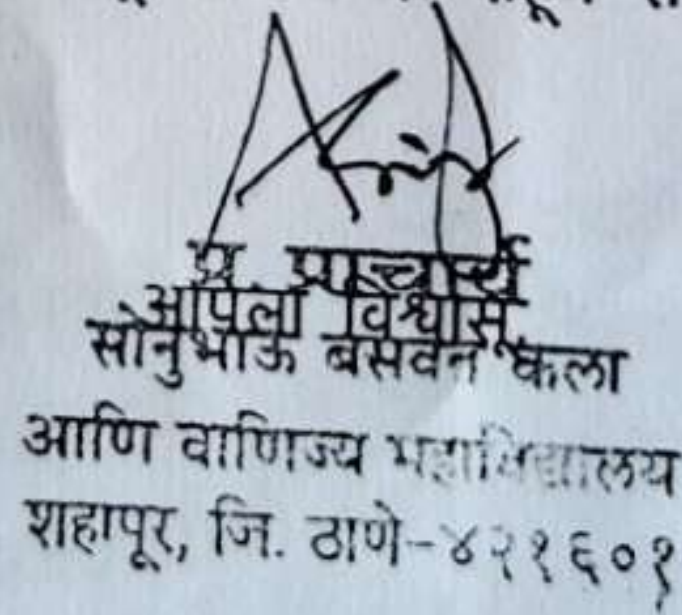 प्र प्राचार्य
आपला विश्वासू
सोनुभाऊ बसवंत कला
आणि वाणिज्य महाविद्यालय
शहापूर, जि. ठाणे-४२१६०१